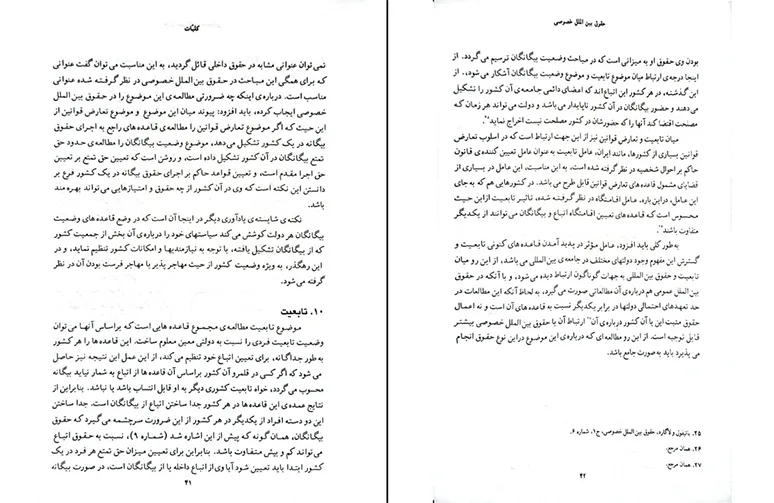 کلیّات
نمی‌توان عنوانی مشابه در حقوق داخلی قائل گردید، به این مناسبت می‌توان گفت عنوانی
که برای همگی این مباحث در حقوق بین‌الملل خصوصی در نظر گرفته شده عنوانی
مناسب است. درباره‌ی اینکه چه ضرورتی مطالعه‌ی این موضوع را در حقوق بین‌الملل
خصوصی ایجاب کرده، باید افزود: پیوند میان این موضوع و موضوع تعارض قوانین از
این حیث که اگر موضوع تعارض قوانین را مطالعه‌ی قاعده‌های راجع به اجرای حقوق
بیگانه در یک کشور تشکیل می‌دهد، موضوع وضعیت بیگانگان را مطالعه‌ی حدود حق
تمتع بیگانگان در آن کشور تشکیل داده است، و روشن است که تعیین حق تمتع بر تعیین
حق اجرا مقدم است، و تعیین قواعد حاکم بر اجرای حقوق بیگانه در یک کشور فرع بر
دانستن این نکته است که وی در آن کشور از چه حقوق و امتیازهایی می‌تواند بهره‌مند
باشد.
نکته‌ی شایسته‌ی یادآوری دیگر در اینجا آن است که در وضع قاعده‌های وضعیت
بیگانگان هر دولت کوشش می‌کند سیاستهای خود را درباره‌ی آن بخش از جمعیت کشور
که از بیگانگان تشکیل یافته، با توجه به نیازمندیها و امکانات کشور تنظیم نماید، و در
این رهگذر، به ویژه وضعیت کشور از حیث مهاجرپذیر یا مهاجرفرست بودن آن در نظر
گرفته می‌شود.
۱۰. تابعیت
موضوع تابعیت مطالعه‌ی مجموع قاعده‌هایی است که براساس آنها می‌توان
وضعیت تابعیت فردی را نسبت به دولتی معین معلوم ساخت. این قاعده‌ها را هر کشور
به طور جداگانه، برای تعیین اتباع خود تنظیم می‌کند، از این عمل این نتیجه نیز حاصل
می‌شود که اگر کسی در قلمرو آن کشور براساس آن قاعده‌ها از اتباع به شمار نیاید بیگانه
محسوب می‌گردد، خواه تابعیت کشوری دیگر به او قابل انتساب باشد یا نباشد. بنابراین از
نتایج عمده‌ی این قاعده‌ها در هر کشور جدا ساختن اتباع از بیگانگان است. جدا ساختن
این دو دسته افراد از یکدیگر در هر کشور از این ضرورت سرچشمه می‌گیرد که حقوق
بیگانگان، همان گونه که پیش از این اشاره شد (شماره ۹)، نسبت به حقوق اتباع
می‌تواند کم و بیش متفاوت باشد. بنابراین برای تعیین میزان حق تمتع هر فرد در یک
کشور ابتدا باید تعیین شود آیا وی از اتباع داخله یا از بیگانگان است، در صورت بیگانه
۴۱
حقوق بین‌الملل خصوصی
بودن وی حقوق او به میزانی است که در مباحث وضعیت بیگانگان ترسیم می‌گردد. از
اینجا درجه‌ی ارتباط میان موضوع تابعیت و موضوع وضعیت بیگانگان آشکار می‌شود. از
این گذشته، در هر کشور این اتباع‌اند که اعضای دائمی جامعه‌ی آن کشور را تشکیل
می‌دهند و حضور بیگانگان در آن کشور ناپایدار می‌باشد و دولت می‌تواند هر زمان که
مصلحت اقتضا کند آنها را که حضورشان در کشور مصلحت نیست اخراج نماید.
میان تابعیت و تعارض قوانین نیز از این جهت ارتباط است که در اسلوب تعارض
قوانین بسیاری از کشورها، مانند ایران، عامل تابعیت به عنوان عامل تعیین کننده‌ی قانون
حاکم بر احوال شخصیه در نظر گرفته شده است، به این مناسبت، این عامل در بسیاری از
قضایای مشمول قاعده‌های تعارض قوانین قابل طرح می‌باشد. در کشورهایی هم که به جای
این عامل، در این باره، عامل اقامتگاه در نظر گرفته شده، تاثیر تابعیت از این حیث
محسوس است که قاعده‌های تعیین اقامتگاه اتباع و بیگانگان می‌توانند از یکدیگر
متفاوت باشند.
به طور کلی باید افزود، عامل مؤثر در پدید آمدن قاعده‌های کنونی تابعیت و
گسترش این مفهوم وجود دولتهای مختلف در جامعه‌ی بین‌المللی می‌باشد، از این رو میان
تابعیت و حقوق بین‌المللی به جهات گوناگون ارتباط دیده می‌شود، و با آنکه در حقوق
بین‌الملل عمومی هم درباره‌ی آن مطالعاتی صورت می‌گیرد، به لحاظ آنکه این مطالعات در
حد تعهدهای احتمالی دولتها در برابر یکدیگر نسبت به قاعده‌های آن است و نه اعمال
حقوق مثبت این یا آن کشور درباره‌ی آن ارتباط آن با حقوق بین‌الملل خصوصی بیشتر
قابل توجیه است. از این رو مطالعه‌ای که درباره‌ی این موضوع در این نوع حقوق انجام
می‌پذیرد باید به صورت جامع باشد.
۲۵. باتیفول و لاگارد، حقوق بین‌الملل خصوصی، ج۱، شماره ۶.
۲۶. همان مرجع.
۲۷. همان مرجع.
۴۲